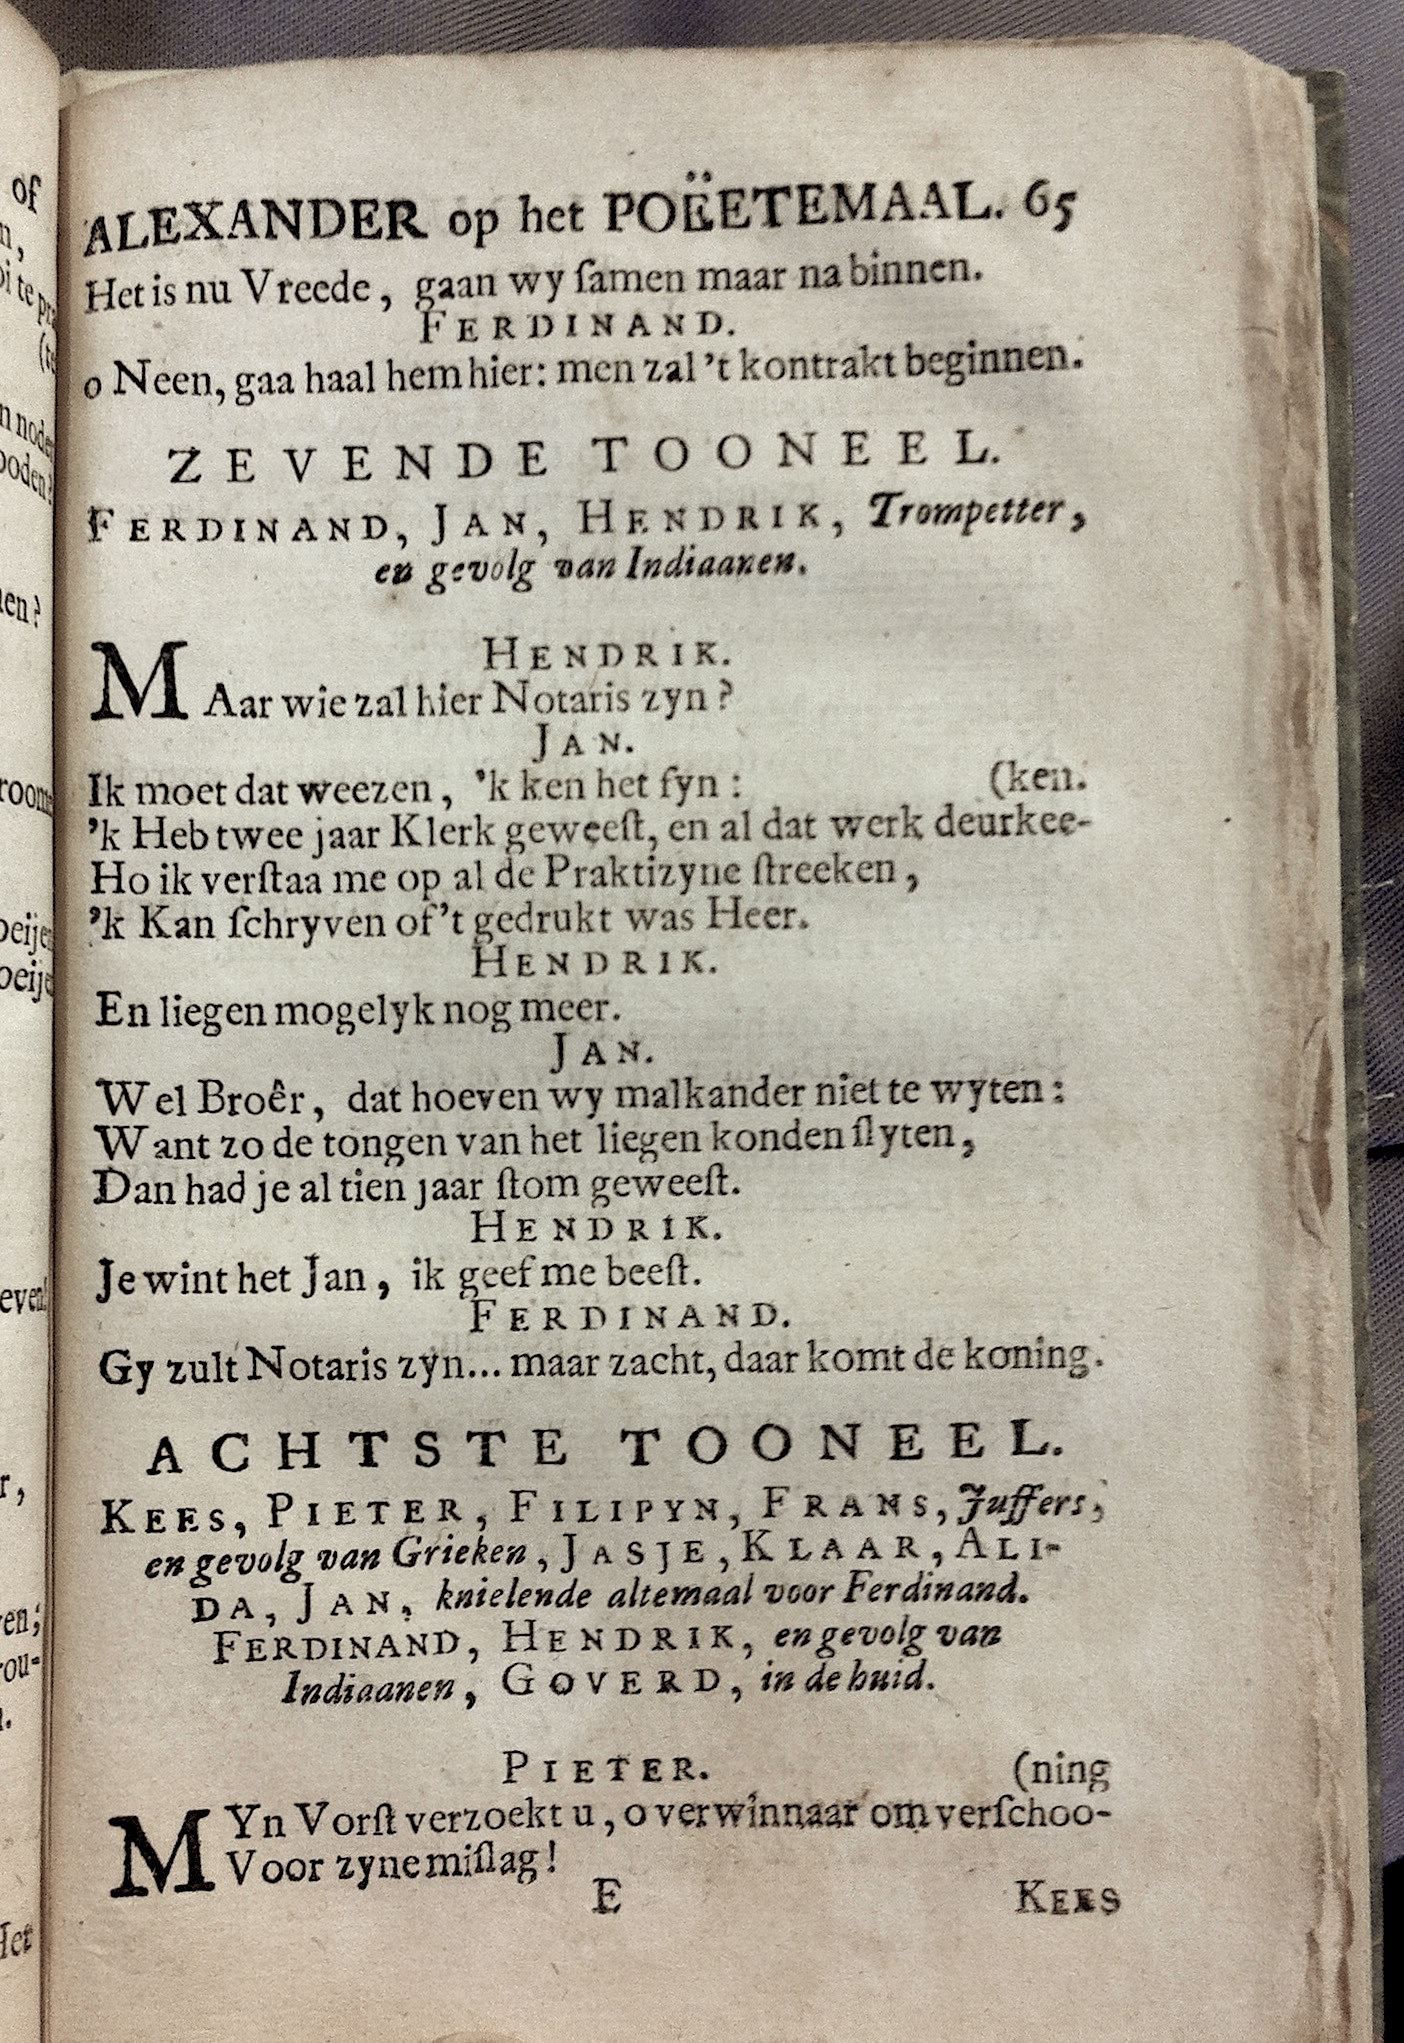 ALEXANDER op het POËETEMAAL. 65
Het is nu Vreede, gaan wy ſamen maar na binnen.
FERDINAND.
o Neen, gaa haal hem hier: men zal 't kontrakt beginnen.
ZEVENDE TOONEEL.
FERDINAND, JAN, HENDRIK, Trompetter,
en gevolg van Indiaanen.
HENDRIK.
MAar wie zal hier Notaris zyn?
JAN.
Ik moet dat weezen, 'k ken het fyn: (ken.
'k Heb twee jaar Klerk geweeſt, en al dat werk deurkee-
Ho ik verſtaa me op al de Praktizyne ſtreeken,
'k Kan ſchryven of 't gedrukt was Heer.
HENDRIK.
En liegen mogelyk nog meer.
JAN.
Wel Broêr, dat hoeven wy malkander niet te wyten:
Want zo de tongen van het liegen konden ſlyten,
Dan had je al tien jaar ſtom geweeſt.
HENDRIK.
Je wint het Jan, ik geef me beeſt.
FERDINAND.
Gy zult Notaris zyn... maar zacht, daar komt de koning.
ACHTSTE TOONEEL.
KEES, PIETER, FILIPYN, FRANS, Juffers,
en gevolg van Grieken, JASJE, KLAAR, ALI-
DA, JAN, knielende altemaal voor Ferdinand.
FERDINAND, HENDRIK, en gevolg van
Indiaanen, GOVERD, in de huid.
PIETER. (ning
MYn Vorſt verzoekt u, o verwinnaar om verſchoo-
Voor zyne miſlag!
E KEES